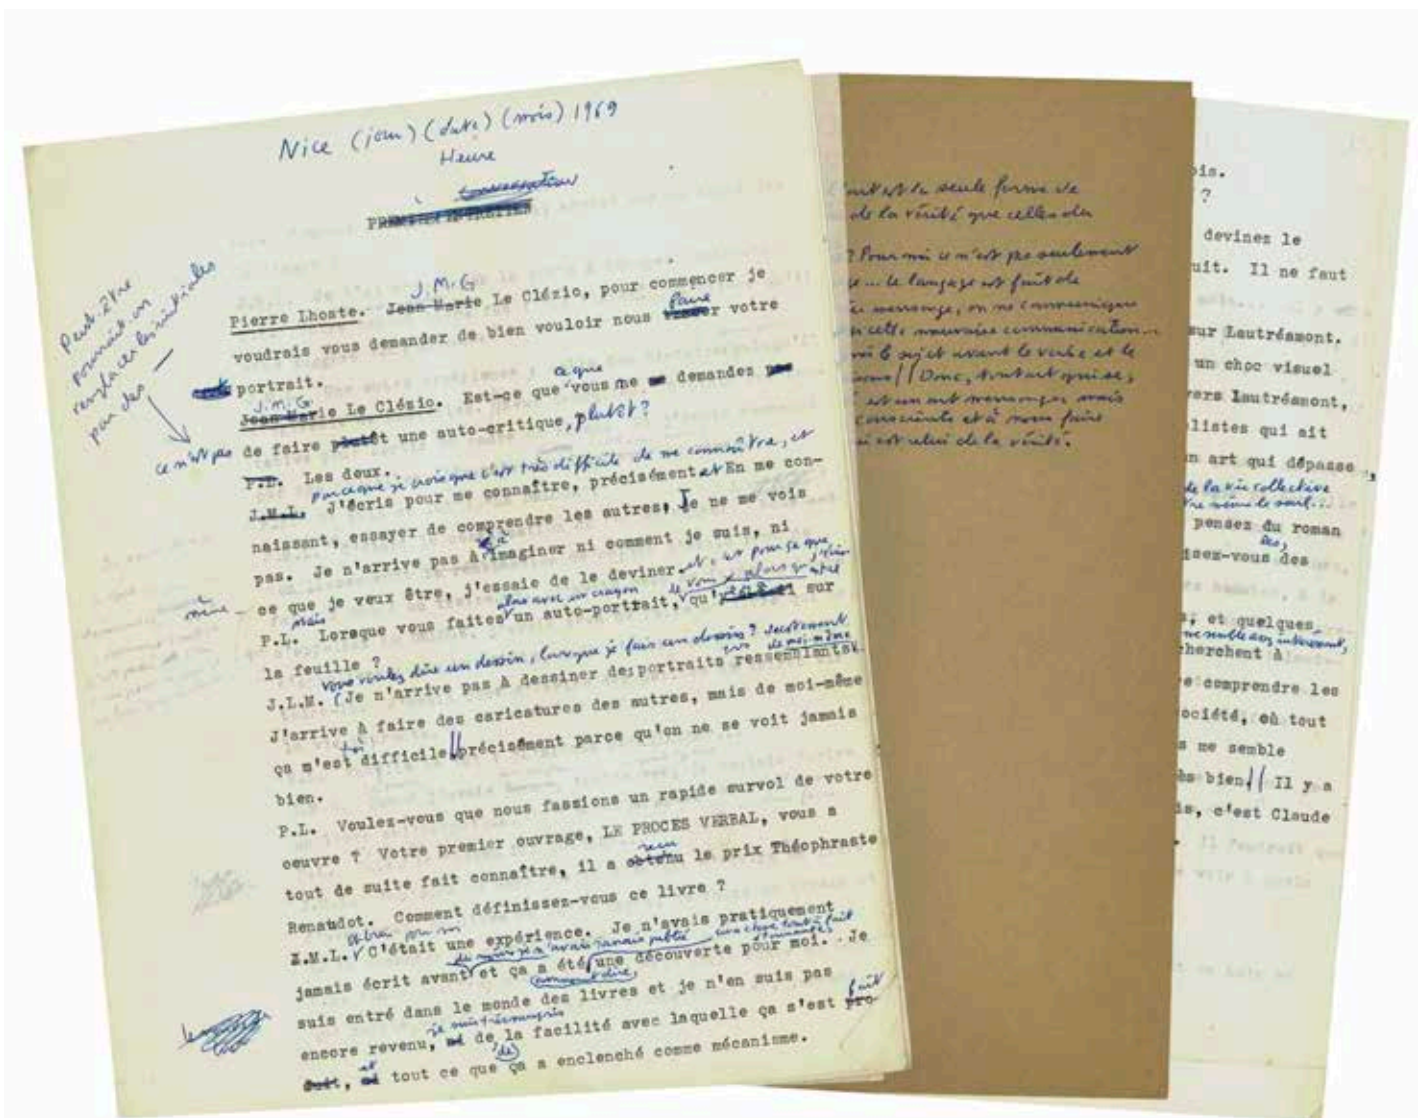 Nice (jour) (date) (mois) 1969
Heure
conversation
PREMIER ENTRETIEN
Peut-être
pourrait-on
remplacer les initiales
par des —
J.M.G
Pierre Lhoste. Jean Marie Le Clézio, pour commencer je
faire
voudrais vous demander de bien vouloir nous votre
portrait.
J.M.G. ce que
Jean Marie Le Clézio. Est-ce que vous me demandez
ce n'est pas de faire plutôt une auto-critique, plutôt ?
P.L. Les deux.
parce que je crois que c'est très difficile de me connaître, et
J.M.L. J'écris pour me connaître, précisément et En me con-
naissant, essayer de comprendre les autres, Je ne me vois
pas. Je n'arrive pas à imaginer ni comment je suis, ni
même
ce que je veux être, j'essaie de le deviner et, est pour ce que
mais alors avec un crayon
P.L. Lorsque vous faites un auto-portrait, sur
la feuille ?
vous voulez dire un dessin, lorsque je fais un dessin ?
J.L.M. (Je n'arrive pas à dessiner des portraits ressemblants
de moi-même
J'arrive à faire des caricatures des autres, mais de moi-même
ça m'est difficile // précisément parce qu'on ne se voit jamais
bien.
P.L. Voulez-vous que nous fassions un rapide survol de votre
oeuvre ? Votre premier ouvrage, LE PROCES VERBAL, vous a
reçu
tout de suite fait connaître, il a obtenu le prix Théophraste
Renaudot. Comment définissez-vous ce livre ?
J.M.L. C'était une expérience. Je n'avais pratiquement
je n'avais jamais publié une chose tout à fait
jamais écrit avant et ça a été une découverte pour moi. Je
comment dire
suis entré dans le monde des livres et je n'en suis pas
je suis très surpris fait
encore revenu, de la facilité avec laquelle ça s'est pro-
et de
duit, tout ce que ça a enclenché comme mécanisme.
l'art est la seule forme de
de la vérité que celles des
? Pour moi ce n'est pas seulement
... le langage est fait de
mensonge, on ne communique
cette mauvaise communication...
le sujet avant le verbe et le
// Donc, tout art
est un art mensonger mais
conscients et à nous faire
est celui de la vérité.
ois.
?
devinez le
uit. Il ne faut
sur Lautréamont.
un choc visuel
vers Lautréamont,
listes qui ait
n art qui dépasse,
de la vie collective
pensez du roman
isez-vous des
s, et quelques
me semble assez intéressant,
cherchent à
e comprendre les
ociété, où tout
s me semble
ès bien // Il y a
is, c'est Claude